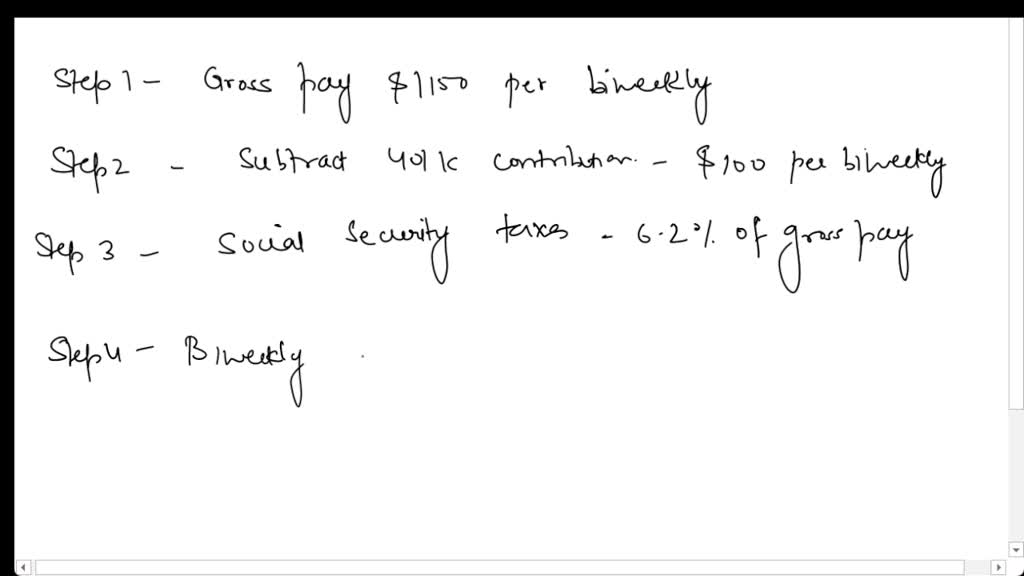 Step 1 - Gross pay $1150 per biweekly
Step 2 - Subtract 401k contribution - $100 per biweekly
Step 3 - Social Security taxes - 6.2% of gross pay
Step 4 - Biweekly